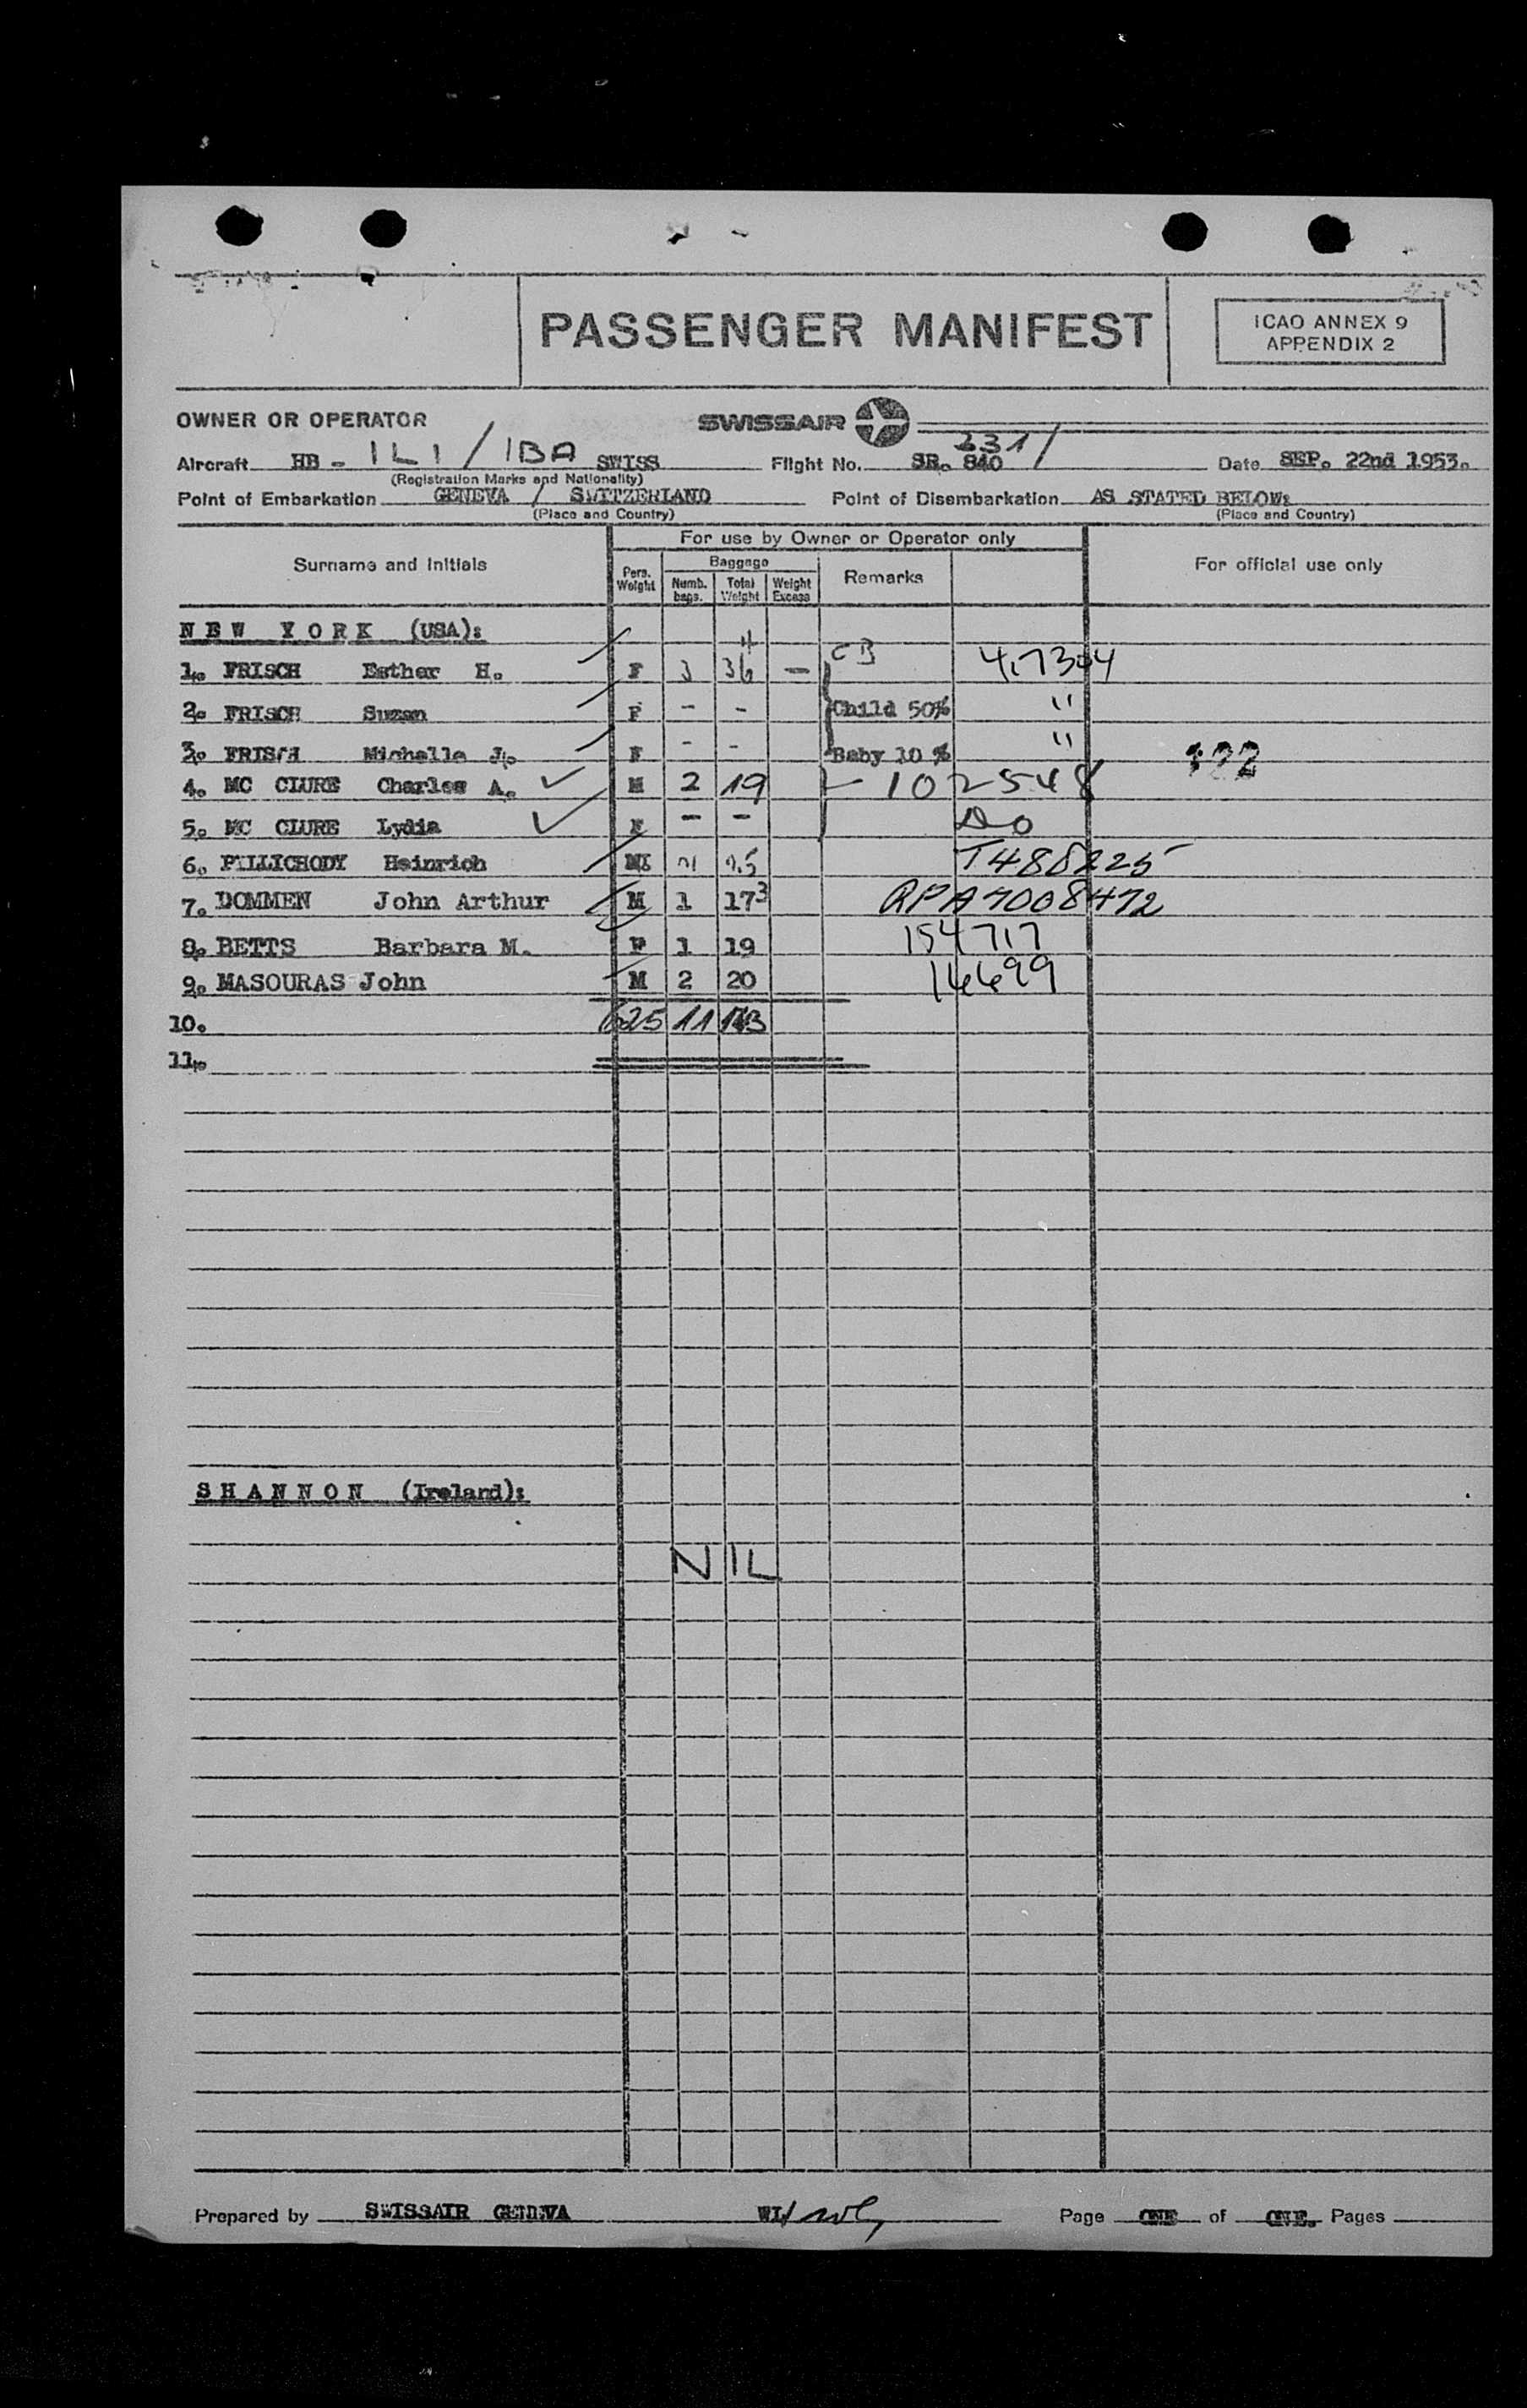 PASSENGER MANIFEST
ICAO ANNEX 9
APPENDIX 2
OWNER OR OPERATOR SWISSAIR
231/
Aircraft HB - ILI / IBA SWISS Flight No. SR. 840 Date SEP. 22nd 1953.
(Registration Marks and Nationality)
Point of Embarkation GENEVA / SWITZERLAND Point of Disembarkation AS STATED BELOW:
(Place and Country) (Place and Country)
For use by Owner or Operator only
Surname and Initials Pers. Weight Baggage Numb. bags. Total Weight Weight Excess Remarks For official use only
NEW YORK (USA):
1. FRISCH Esther H. F 3 36 — CB 417304
2. FRISCH Suzan F - - Child 50% "
3. FRISCH Michelle J. F - - Baby 10 % "
4. MC CLURE Charles A. M 2 19 102548
5. MC CLURE Lydia F - - Do
6. PILLICHODY Heinrich M T488225
7. DOMMEN John Arthur M 1 17 QPA7008472
8. BETTS Barbara M. F 1 19 154717
9. MASOURAS John M 2 20 14699
10. 625 11
11.
SHANNON (Ireland):
NIL
Prepared by SWISSAIR GENEVA WI/ Page ONE of ONE. Pages